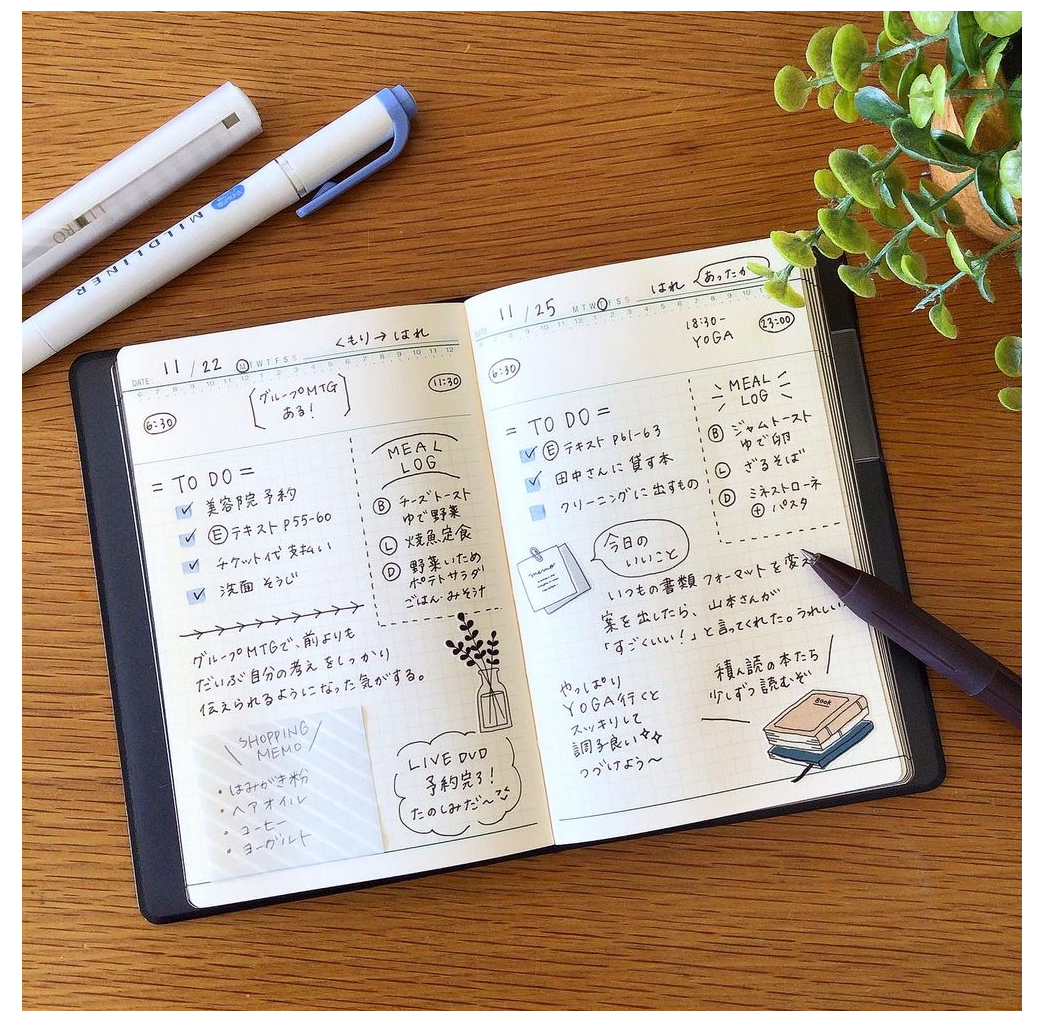 MILDLINER
DATE 11/22 M T W T F S S くもり→はれ
6 7 8 9 10 11 12 1 2 3 4 5 6 7 8 9 10 11 12
6:30
グループMTG
ある!
11:30
=TO DO=
美容院予約
Ⓔテキスト P55-60
チケット代 支払い
洗面 そうじ
MEAL
LOG
Ⓑ チーズトースト
ゆで野菜
Ⓛ 焼魚定食
Ⓓ 野菜いため
ポテトサラダ
ごはん・みそ汁
グループMTGで、前よりも
だいぶ自分の考えをしっかり
伝えられるようになった気がする。
SHOPPING
MEMO
・はみがき粉
・ヘアオイル
・コーヒー
・ヨーグルト
LIVE DVD
予約完了!
たのしみだ〜
DATE 11/25 M T W T F S S はれ あったか
6:30
18:30-
YOGA
23:00
=TO DO=
Ⓔテキスト P61-63
田中さんに 貸す本
クリーニングに出すもの
MEAL
LOG
Ⓑ ジャムトースト
ゆで卵
Ⓛ ざるそば
Ⓓ ミネストローネ
⊕ パスタ
memo
今日の
いいこと
いつもの書類 フォーマットを変え
案を出したら、山本さんが
「すごくいい!」と言ってくれた。うれしい
やっぱり
YOGA行くと
スッキリして
調子良い
つづけよう〜
積ん読の本たち
少しずつ読むぞ
Book